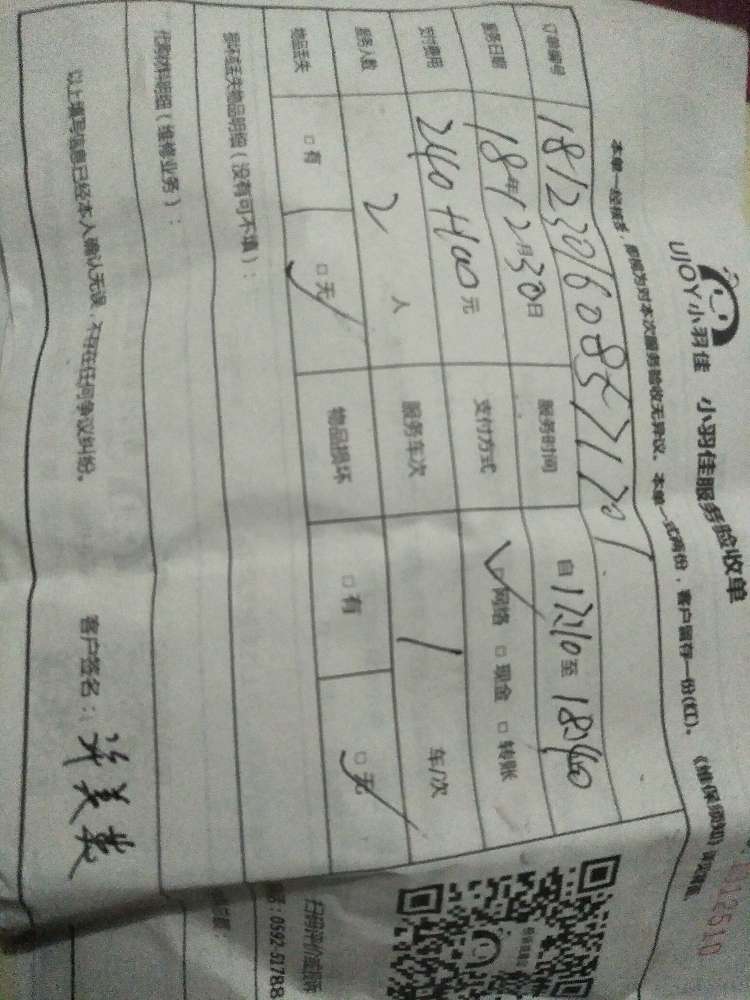 UJOY小羽佳 小羽佳服务验收单
本单一经核杀，即视为对本次服务验收无异议。本单一式两份，客户留存一份(红)。《维保须知》详见背面。
订单编号
服务日期 18年12月30日 服务时间 自17:10至18:40
支付费用 240+100元 支付方式 网络 □现金 □转账
服务人数 2人 服务车次 1 车/次
物品丢失 □有 □无 物品损坏 □有 □无
损坏或丢失物品明细（没有可不填）：
代购材料明细（维修业务）：
以上填写信息已经本人确认无误，不存在任何争议纠纷。 客户签名：
0592-51788